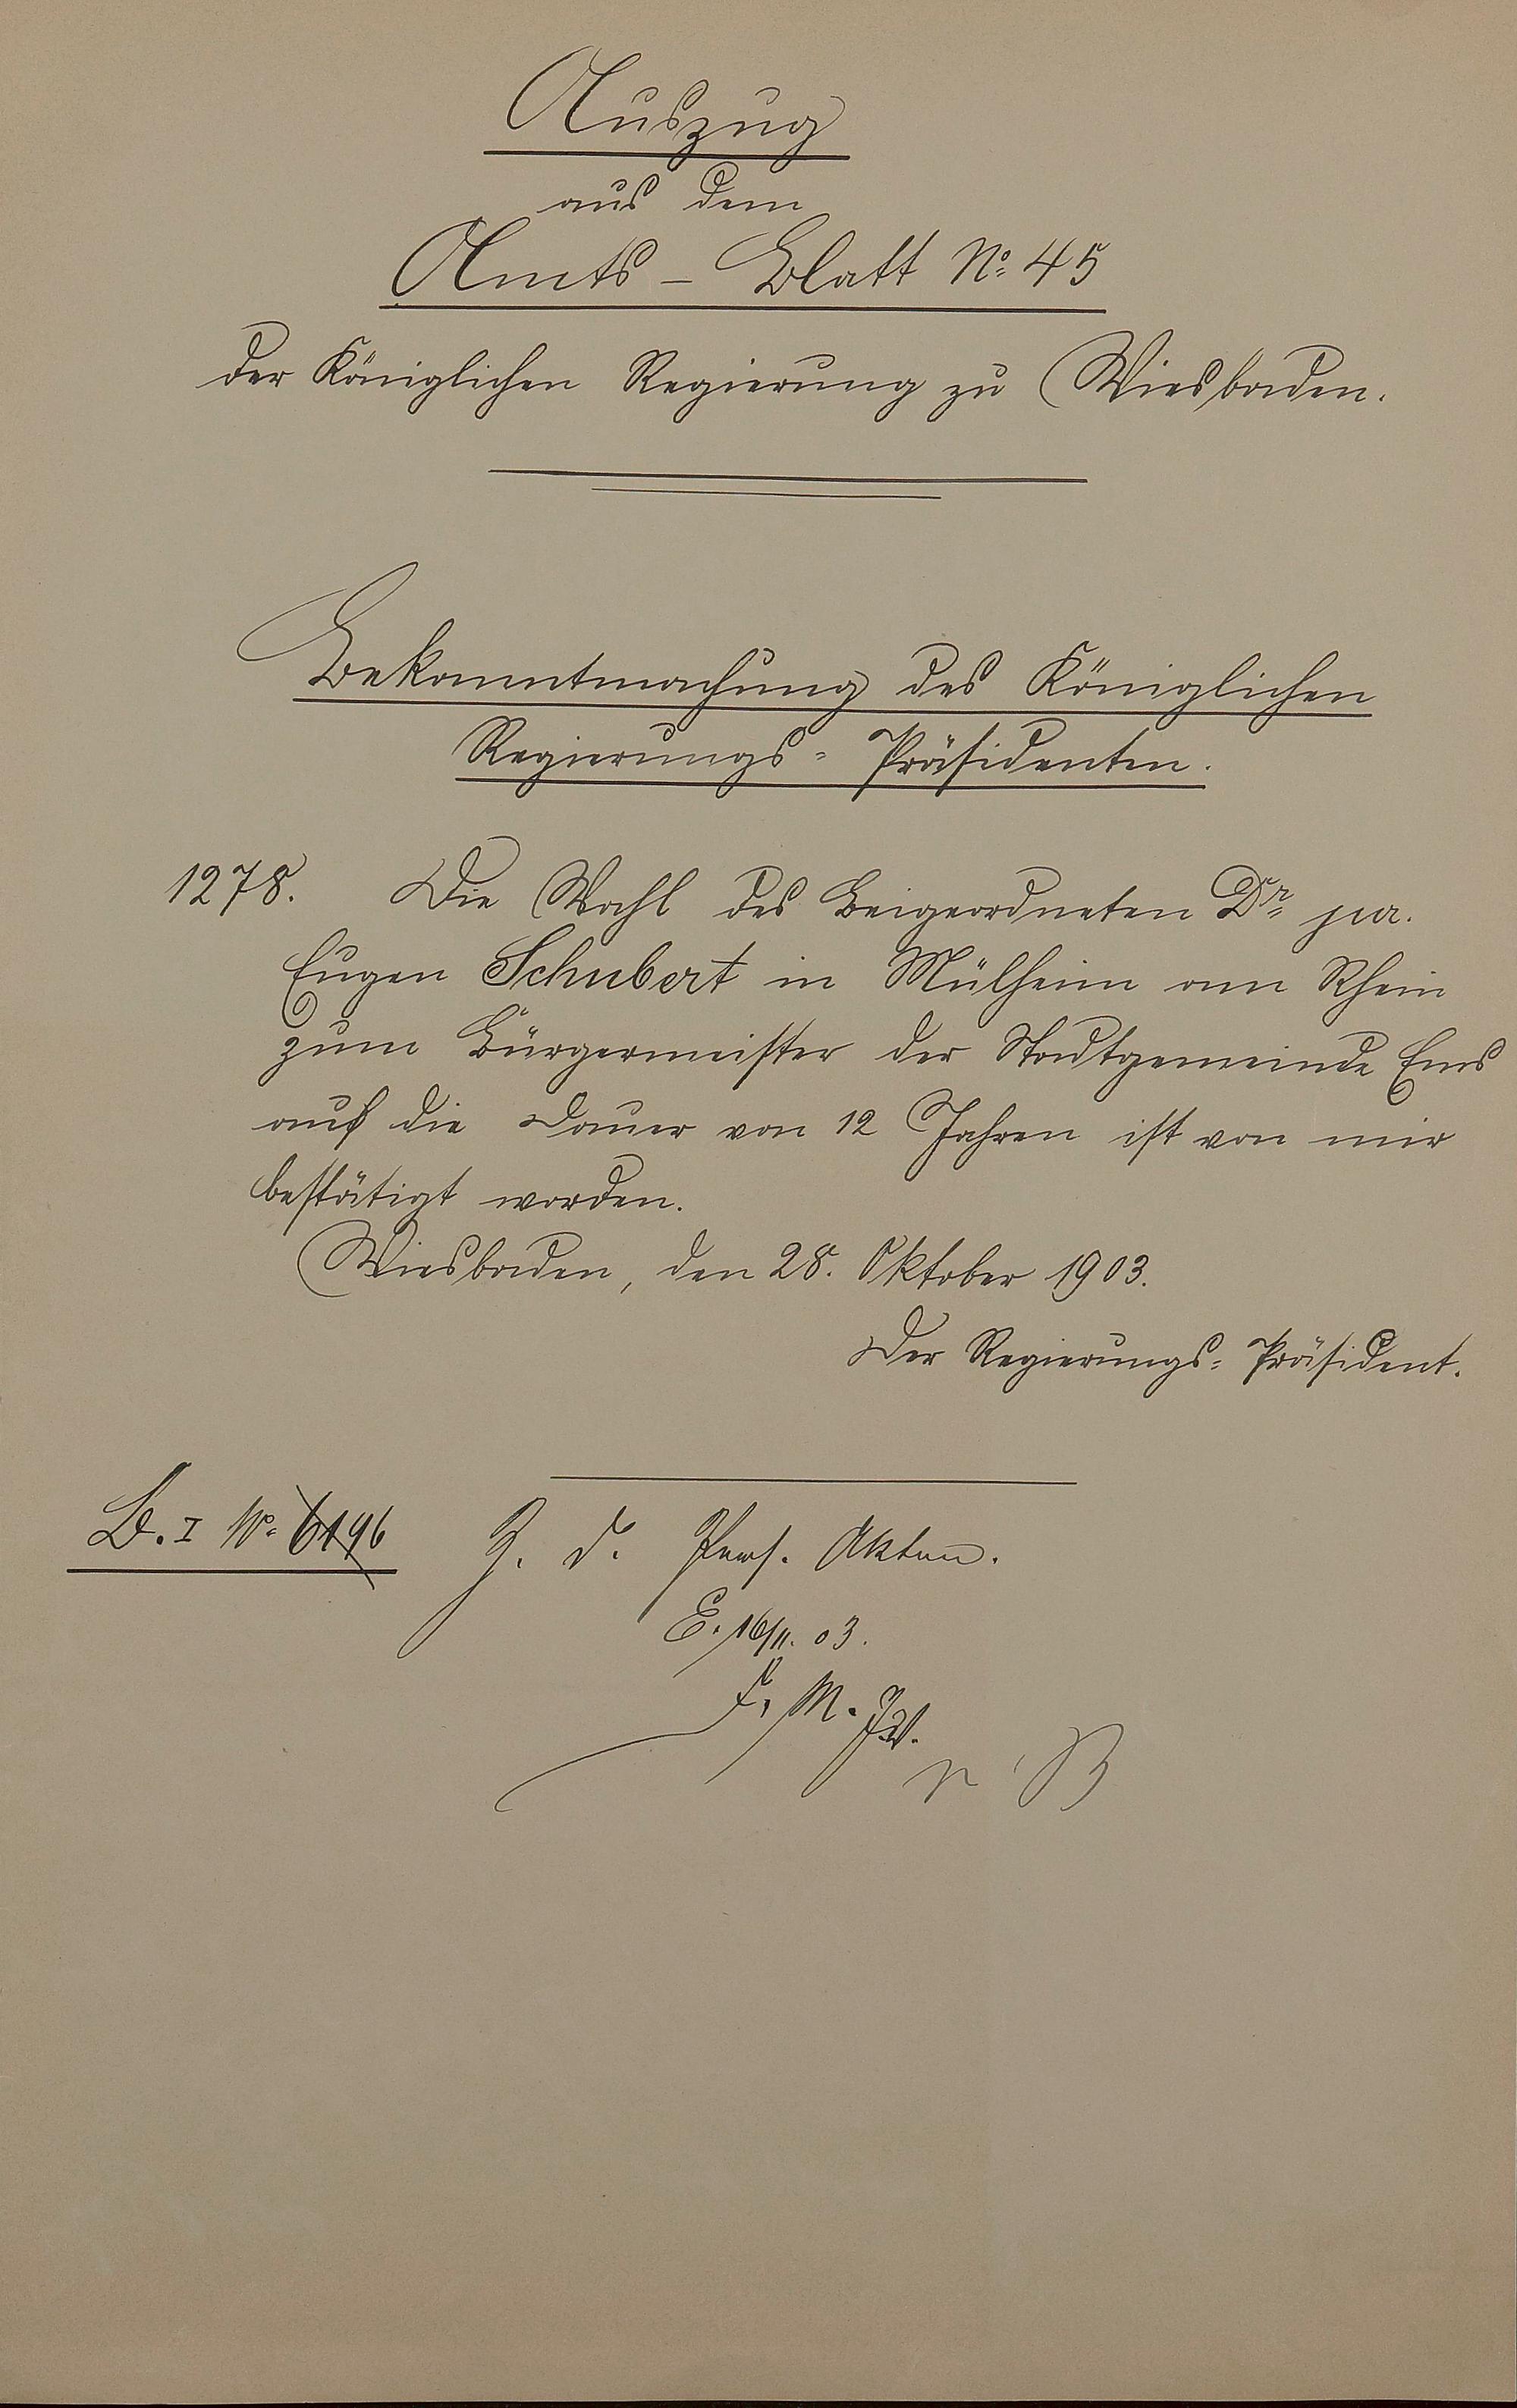 Auszug
aus dem
Amts-Blatt No. 45
der Königlichen Regierung zu Wiesbaden.
Bekanntmachung des Königlichen
Regierungs-Präsidenten.
1278. Die Wahl des Beigeordneten Dr. jur.
Eugen Schubert in Mülheim am Rhein
zum Bürgermeister der Stadtgemeinde Ems
auf die Dauer von 12 Jahren ist von mir
bestätigt worden.
Wiesbaden, den 28. Oktober 1903.
Der Regierungs-Präsident.
B. I No. 6196
Z. d. Pers. Akten.
E. 16/11. 03.